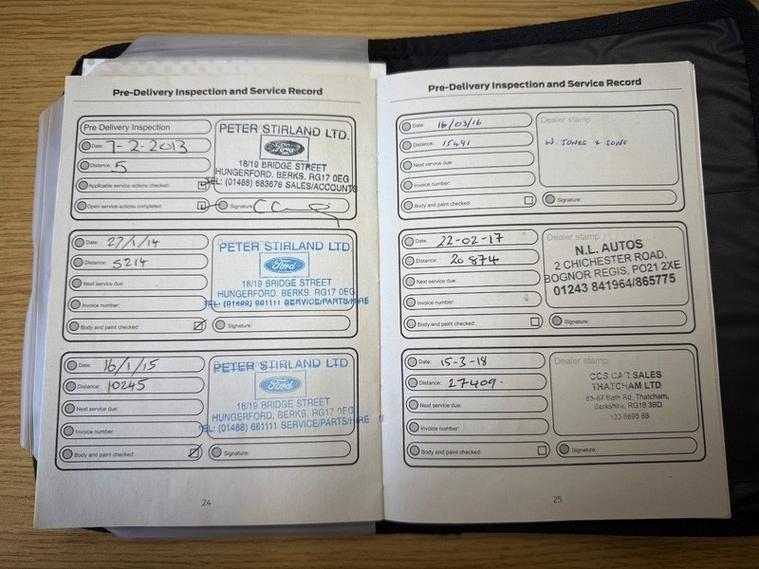 Pre-Delivery Inspection and Service Record
Pre Delivery Inspection
Date: 7-2-2013
Distance: 5
Applicable service actions checked:
Open service actions completed:
PETER STIRLAND LTD.
Ford
18/19 BRIDGE STREET
HUNGERFORD. BERKS. RG17 0EG
TEL: (01488) 683678 SALES/ACCOUNTS
Signature:
Date: 27/1/14
Distance: 5214
Next service due:
Invoice number:
Body and paint checked:
PETER STIRLAND LTD
Ford
18/19 BRIDGE STREET
HUNGERFORD. BERKS. RG17 0EG
TEL: (01488) 681111 SERVICE/PARTS/HIRE
Signature:
Date: 16/1/15
Distance: 10245
Next service due:
Invoice number:
Body and paint checked:
PETER STIRLAND LTD
Ford
18/19 BRIDGE STREET
HUNGERFORD. BERKS. RG17 0EG
TEL: (01488) 681111 SERVICE/PARTS/HIRE
Signature:
24
Pre-Delivery Inspection and Service Record
Date: 16/03/16
Distance: 15491
Next service due:
Invoice number:
Body and paint checked:
Dealer stamp:
W. JONES & SONS
Signature:
Date: 22-02-17
Distance: 20874
Next service due:
Invoice number:
Body and paint checked:
Dealer stamp:
N.L. AUTOS
2 CHICHESTER ROAD,
BOGNOR REGIS, PO21 2XE
01243 841964/865775
Signature:
Date: 15-3-18
Distance: 27409.
Next service due:
Invoice number:
Body and paint checked:
Dealer stamp:
CCS CAR SALES
THATCHAM LTD
65-67 Bath Rd, Thatcham,
Berkshire, RG18 3BD
Signature:
25